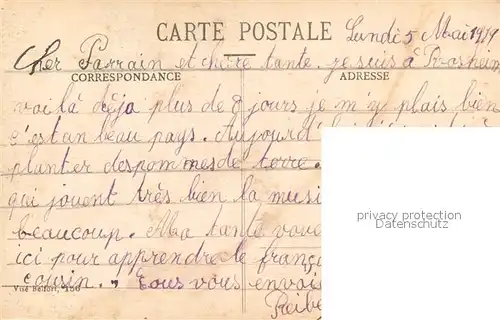 CARTE POSTALE Lundi 5 Mai 1919
Cher Parrain et chère tante. je suis à
CORRESPONDANCE ADRESSE
voilà déja plus de 8 jours je m'y plais bien
c'est un beau pays. Aujourd'
planter des pommes de terre.
qui jouent très bien la musi
beaucoup. Ma tante vous
ici pour apprendre le franç
cousin. Tous vous envoi
Visé Belfort, 156
privacy protection
Datenschutz